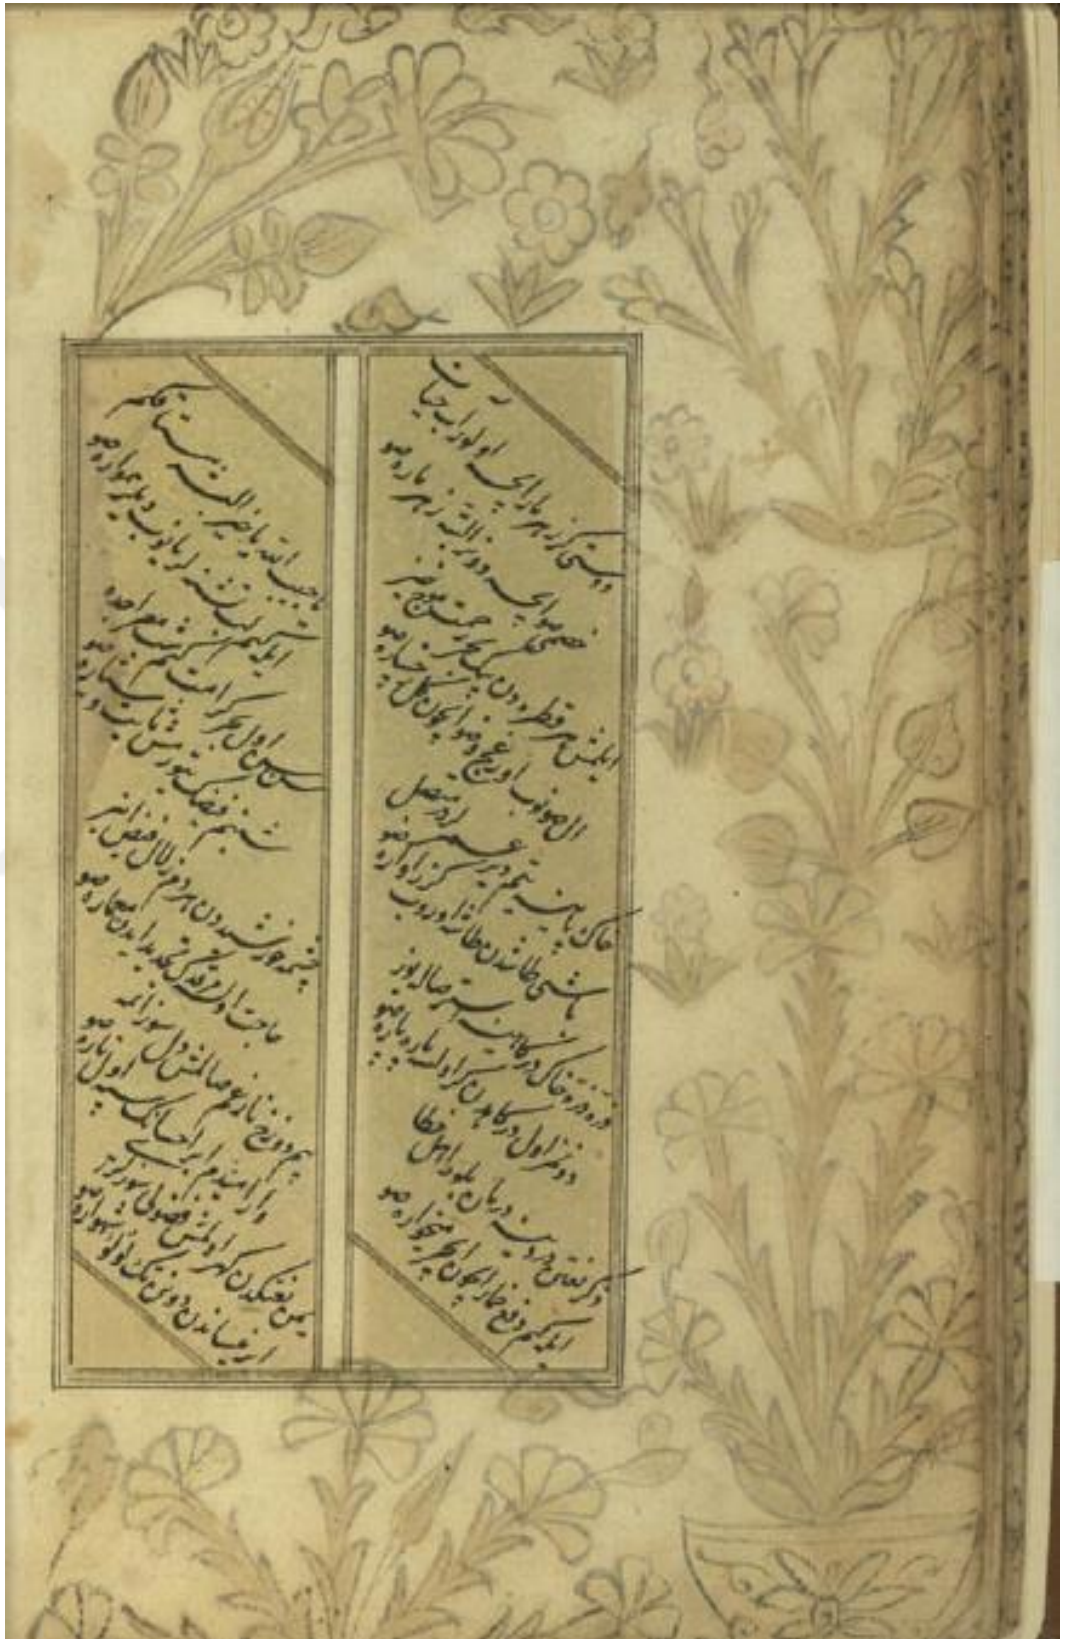 دوستی گر زهر مار ایچسه اولور آب حیات
خصمی صو ایچسه دونر البته زهر ماره صو
ایلمش هر قطره دن بیک بحر رحمت موج خیز
ال صونوب اورغچ وضو ایچون گل رخساره صو
خاک پاینه یتم دیر عمرلردر متصل
باشنی طاشدن طاشه اوروب گزر آواره صو
ذره ذره خاک درگاهنه ایستر صاله نور
دونمز اول درگاهدن گر اولسه پاره پاره صو
ذکر نعتن وردینه درمان بلور اهل خطا
ایله کیم دفع خمار ایچون ایچر میخواره صو
یا حبیب الله یا خیر البشر مشتاقکم
ایله کیم لب تشنه لر یانوب دیلر همواره صو
سنسن اول بحر کرامت کیم شب معراجده
شبنم فیضک یتورمش ثابت و سیاره صو
چشمه خورشیددن هر دم زلال فیض اینر
حاجت اولسه مرقدک تجدید ایدن معماره صو
بیم دوزخ نار غم صالمش دل سوزانمه
وار امیدم ابر احسانک سپه اول ناره صو
یمن نعتکدن گهر اولمش فضولی سوزلری
ابر نیساندن دونن تک لولو شهواره صو